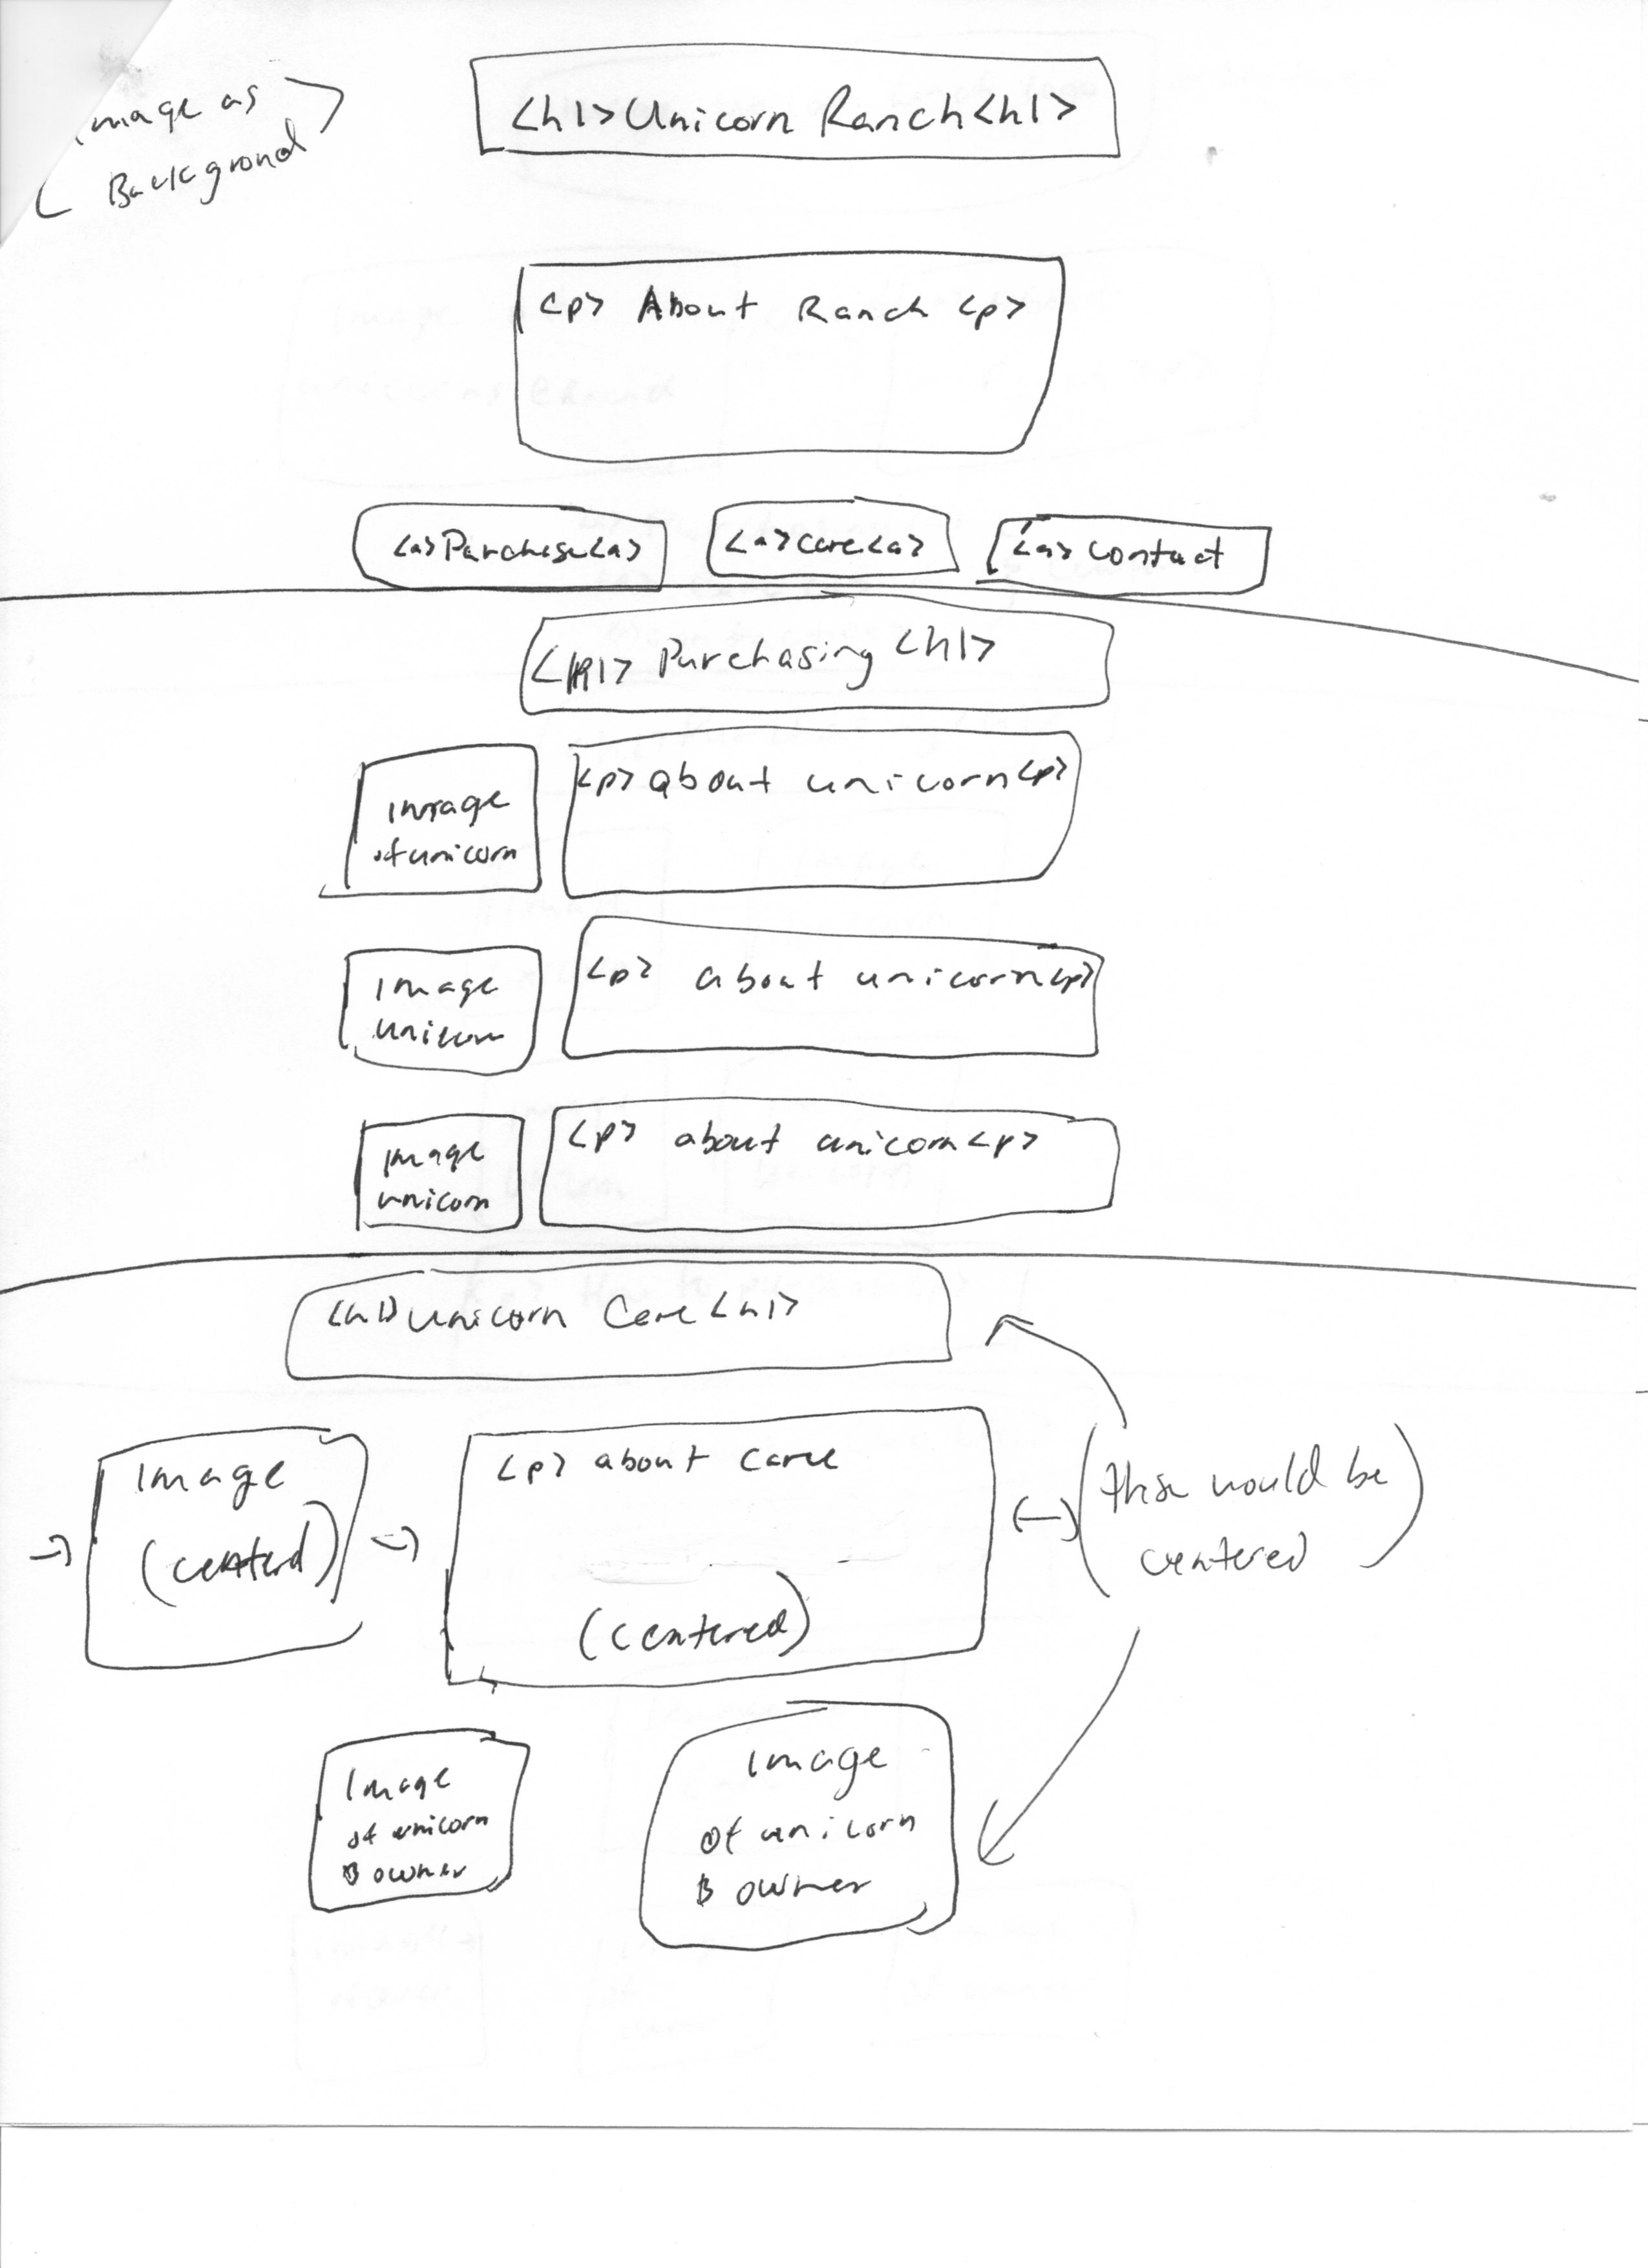 Image as
Backgrond
<h1>Unicorn Ranch<h1>
<p> About Ranch <p>
<a>Purchase<a>
<a>care<a>
<a> contact
<h1> Purchasing <h1>
Image
of unicorn
<p> about unicorn<p>
Image
unicorn
<p> about unicorn<p>
Image
unicorn
<p> about unicorn<p>
<h1>Unicorn Care<h1>
Image
(centerd)
<p> about care
(centered)
(this would be
centered)
Image
of unicorn
owner
Image
of unicorn
owner